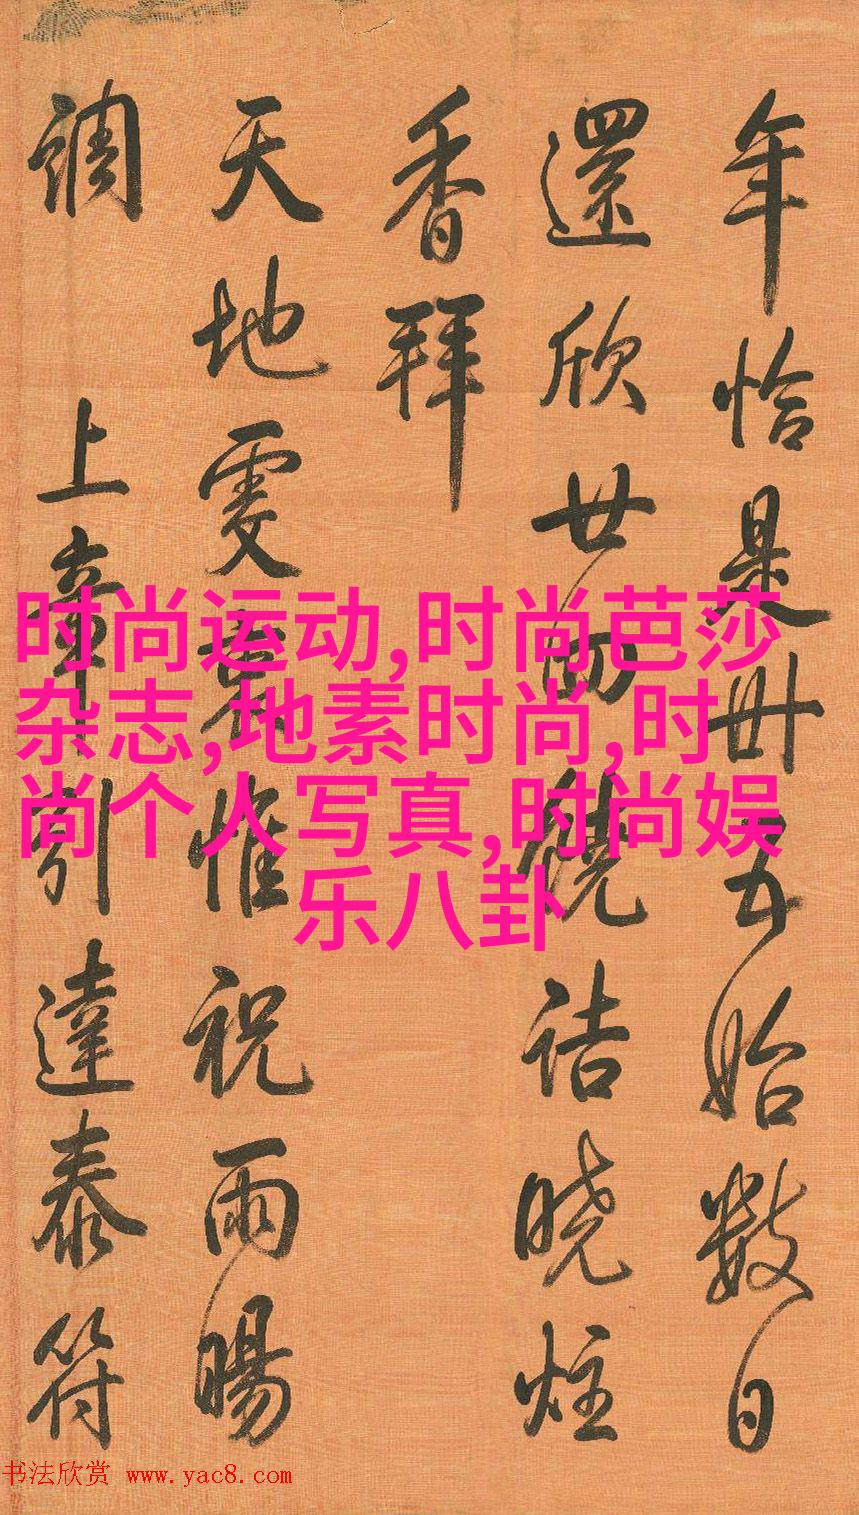 年恰是卅五始數日
還欣廿四饒詰曉炷
香拜
天地雯𮥼惟祝雨暘
調 上章引達泰符
时尚运动,时尚芭莎
杂志,地素时尚,时
尚个人写真,时尚娱
乐八卦
书法欣赏 www.yac8.com